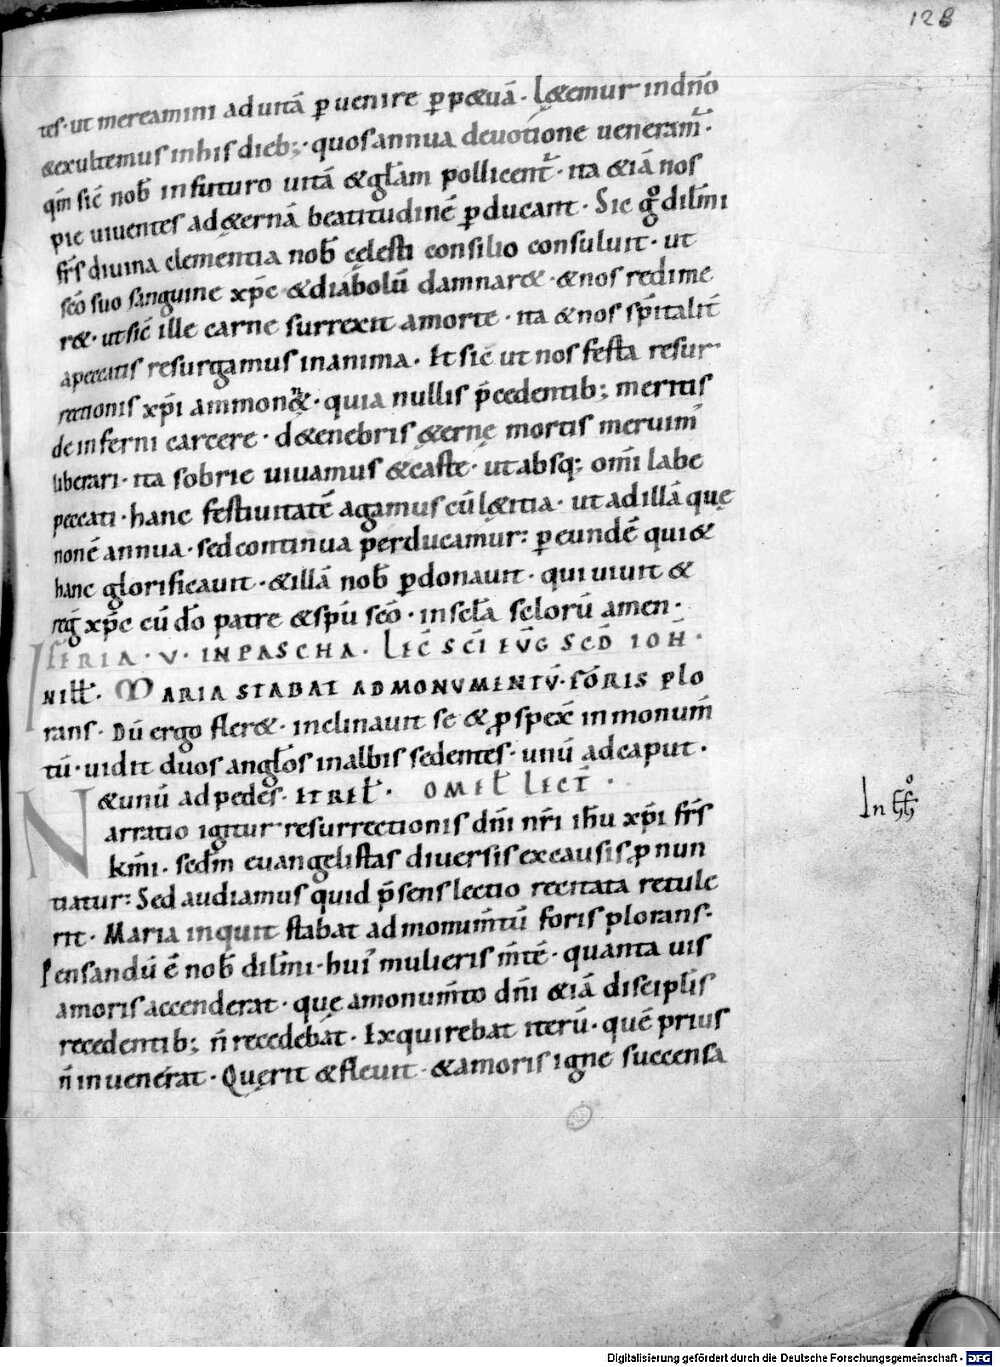 128
tes· ut mereamini ad uitā ꝑuenire ꝑpetuā· Lętemur in dn̄o
& exultemus in his dieb;· quos annua deuotione ueneram̄·
qm̄ sic̄ nob̄ in futuro uitā & gl̄am pollicent̄· ita & iā nos
pie uiuentes ad ęternā beatitudinē ꝑducant· Sic g̊ dil̄mi
fr̄s diuina clementia nob̄ cęlesti consilio consuluit· ut
sc̄o suo sanguine xp̄c & diabolū damnar&· & nos redime
r&· ut sic̄ ille carne surrexit a morte· ita & nos sp̄italit̄
a peccatis resurgamus in anima· Et sic̄ ut nos festa resur
rectionis xp̄i ammonent· quia nullis p̄cedentib; meritis
de inferni carcere· d& enebris ęternę mortis meruim̄
liberari· ita sobrie uiuamus & caste· ut absq; om̄i labe
peccati· hanc festiuitatē agamus cū lętitia· ut ad illā quę
non ē annua· sed continua perducamur: ꝑ eundē qui &
hanc glorificauit· & illā nob̄ ꝑdonauit· qui uiuit &
reḡ xp̄c cū dō patre & spū scō· in sc̄la sc̄lorū amen·
FERIA· V· IN PASCHA· LEC̄ SC̄I EV̄G SCD̄ IOH̄·
NILL̄· MARIA STABAT AD MONVMENTV̄· FORIS PLO
rans· Dū ergo fler&· inclinauit se & ꝓspex̄ in monum̄
tū· uidit duos angl̄os in albis sedentes· unū ad caput·
& unū ad pedes· ET REL̄· OMEL̄ LECT̄·
Narratio igitur resurrectionis dn̄i nr̄i ih̄u xp̄i fr̄s
km̄i· sed̄m euangelistas diuersis ex causis ꝓnun
tiatur: Sed audiamus quid p̄sens lectio recitata retule
rit· Maria inquit stabat ad monum̄tū foris plorans·
Pensandū ē nob̄ dil̄mi· hui᾽ mulieris m̄tē· quanta uis
amoris accenderat· quę a monum̄to dn̄i & iā discipl̄is
recedentib; n̄ recedebat· Exquirebat iterū· quē prius
n̄ inuenerat· Quęrit & fleuit· & amoris igne succensa
Digitalisierung gefördert durch die Deutsche Forschungsgemeinschaft - DFG